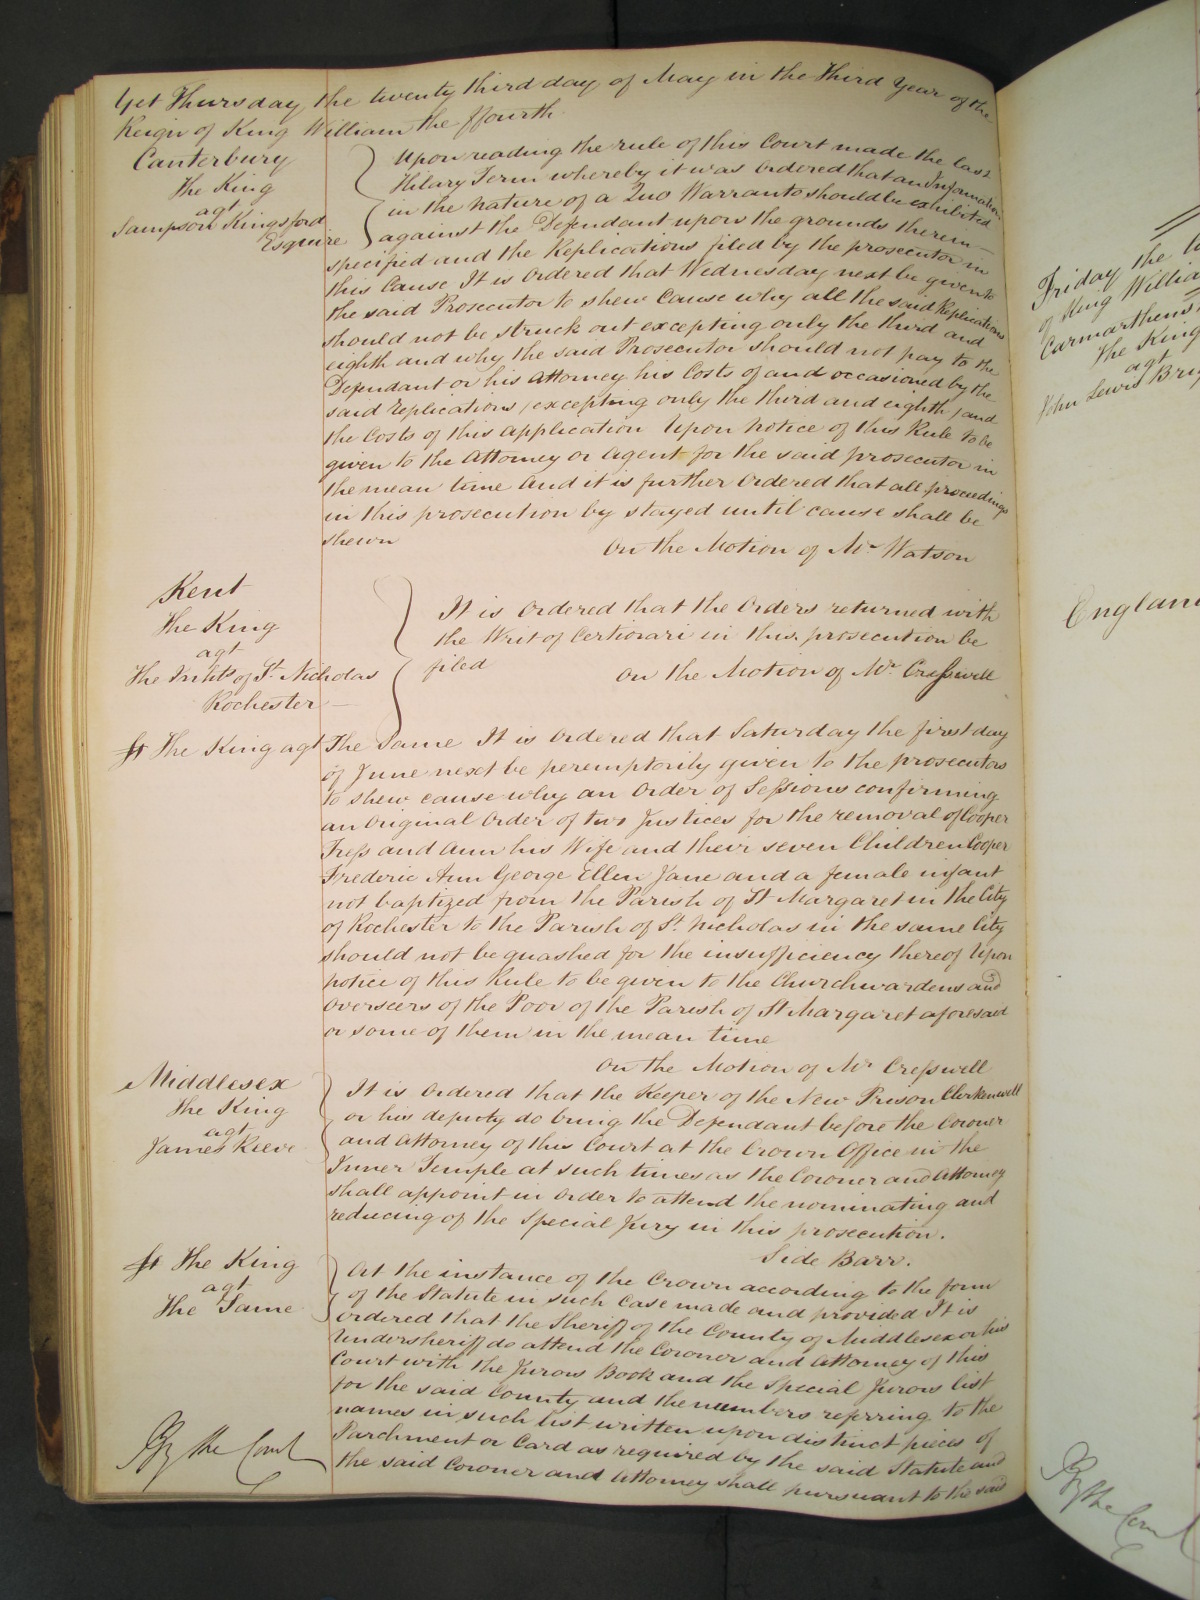 Yet Thursday the twenty third day of May in the Third Year of the
Reign of King William the ffourth
Canterbury
The King
agt
Sampson Kingsford
Esquire
Upon reading the rule of this Court made the last
Hilary Term whereby it was Ordered that an Information
in the nature of a Quo Warranto should be exhibited
against the Defendant upon the grounds therein
specified and the Replications filed by the prosecutor in
this Cause It is Ordered that Wednesday next be given to
the said Prosecutor to shew Cause why all the said Replications
should not be struck out excepting only the third and
eighth and why the said Prosecutor should not pay to the
Defendant or his Attorney his Costs of and occasioned by the
said Replications (excepting only the third and eighth) and
the Costs of this application Upon notice of this Rule to be
given to the Attorney or Agent for the said prosecutor in
the mean time And it is further Ordered that all proceedings
in this prosecution by stayed until cause shall be
shewn
On the Motion of Mr Watson
Kent
The King
agt
The Inhts of St Nicholas
Rochester
It is Ordered that the Orders returned with
the Writ of Certiorari in this prosecution be
filed
On the Motion of Mr Cresswell
St The King agt The Same It is Ordered that Saturday the first day
of June next be peremptorily given to the prosecutors
to shew cause why an Order of Sessions confirming
an Original Order of two Justices for the removal of Cooper
Tress and Ann his Wife and their seven Children Cooper
Frederic Ann George Ellen Jane and a female infant
not baptized from the Parish of St Margaret in the City
of Rochester to the Parish of St Nicholas in the same City
should not be quashed for the insufficiency thereof Upon
notice of this Rule to be given to the Churchwardens and
Overseers of the Poor of the Parish of St Margaret aforesaid
or some of them in the mean time
On the Motion of Mr Cresswell
Middlesex
The King
agt
James Reeve
It is Ordered that the Keeper of the New Prison Clerkenwell
or his deputy do bring the Defendant before the Coroner
and Attorney of this Court at the Crown Office in the
Inner Temple at such times as the Coroner and Attorney
shall appoint in Order to attend the nominating and
reducing of the Special Jury in this prosecution.
Side Barr.
St The King
agt
The Same
At the instance of the Crown according to the form
of the Statute in such case made and provided It is
Ordered that the Sheriff of the County of Middlesex or his
Undersheriff do attend the Coroner and Attorney of this
Court with the Jurors Book and the Special Jurors list
for the said County and the numbers referring to the
names in such list written upon distinct pieces of
Parchment or Card as required by the said Statute and
the said Coroner and Attorney shall pursuant to the said
By the Court
Friday the
of King Willia
Carmarthens
The King
agt
John Lewis
England
By the Court